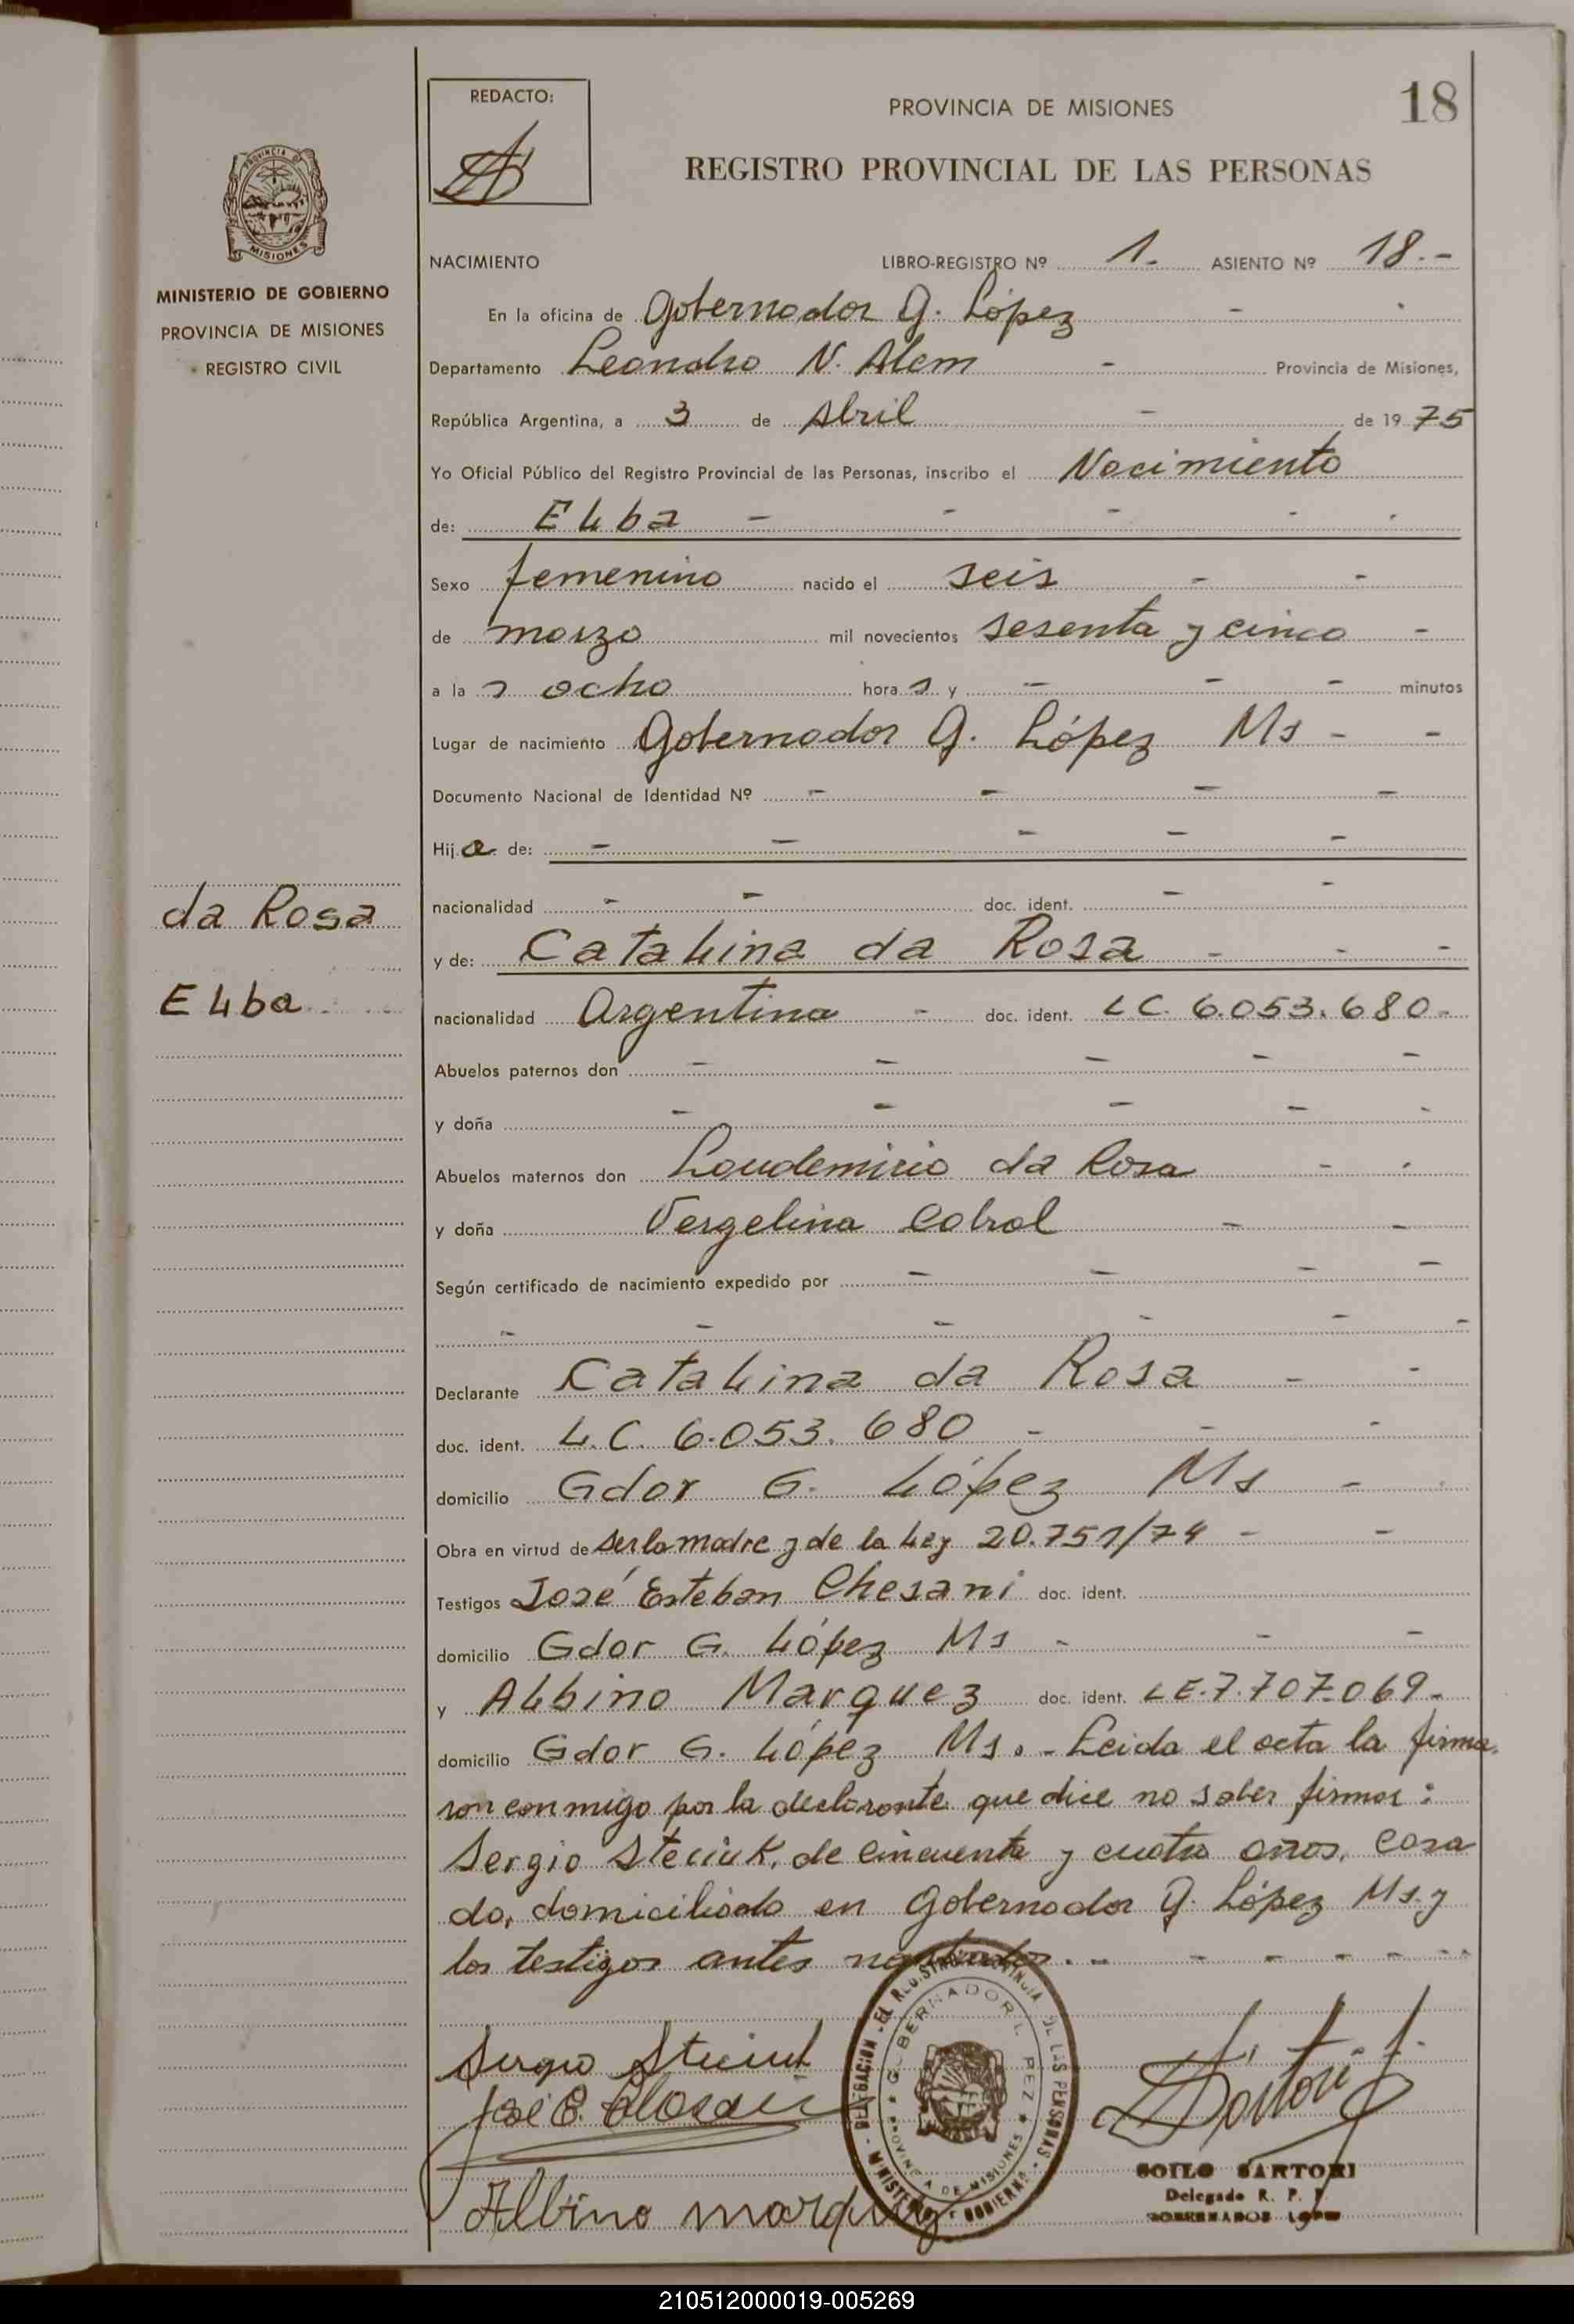 REDACTO:
PROVINCIA DE MISIONES
18
REGISTRO PROVINCIAL DE LAS PERSONAS
PROVINCIA DE
MISIONES
MINISTERIO DE GOBIERNO
PROVINCIA DE MISIONES
REGISTRO CIVIL
NACIMIENTO LIBRO-REGISTRO Nº 1.- ASIENTO Nº 18.-
En la oficina de Gobernador G. López -
Departamento Leandro N. Alem - Provincia de Misiones,
República Argentina, a 3 de Abril - de 1975
Yo Oficial Público del Registro Provincial de las Personas, inscribo el Nacimiento
de: Elba - - - - -
Sexo femenino nacido el seis - -
de marzo mil novecientos sesenta y cinco -
a la s ocho hora s y - - - minutos
Lugar de nacimiento Gobernador G. López Ms - -
Documento Nacional de Identidad Nº - - - -
Hija de: - - - - -
nacionalidad - - doc. ident. - -
da Rosa
y de: Catalina da Rosa - - -
Elba
nacionalidad Argentina - doc. ident. LC. 6.053.680-
Abuelos paternos don - - - - -
y doña - - - - -
Abuelos maternos don Laudemirio da Rosa - -
y doña Vergelina Cabral - -
Según certificado de nacimiento expedido por - - - -
- - - - - -
Declarante Catalina da Rosa - -
doc. ident. L.C. 6.053.680 - - -
domicilio Gdor G. López Ms -
Obra en virtud de ser la madre y de la Ley 20.751/74 - -
Testigos José Esteban Chesani doc. ident.
domicilio Gdor G. López Ms - - -
y Albino Marquez doc. ident. LE.7.707.069-
domicilio Gdor G. López Ms.- Leida el acta la firma
ron conmigo por la declarante que dice no saber firmar:
Sergio Steciuk, de cincuenta y cuatro años, casa
do, domiciliado en Gobernador G. López Ms. y
los testigos antes nombrados.- - - - - -
Sergio Steciuk
José E. Chesani
Albino marquez
DELEGACION DEL REGISTRO PROVINCIAL DE LAS PERSONAS - MINISTERIO DE GOBIERNO -
GOBERNADOR LOPEZ * PROVINCIA DE MISIONES *
SOILO SARTORI
Delegado R. P. P.
GOBERNADOR LOPEZ
210512000019-005269